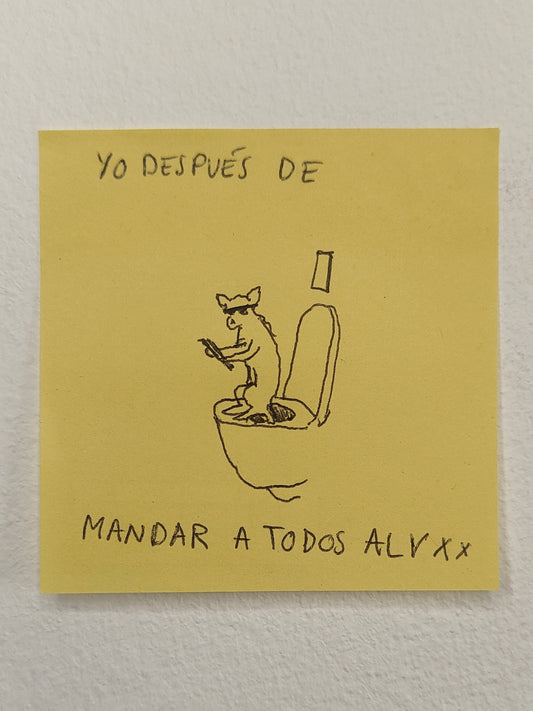 YO DESPUÉS DE
MANDAR A TODOS ALV xx